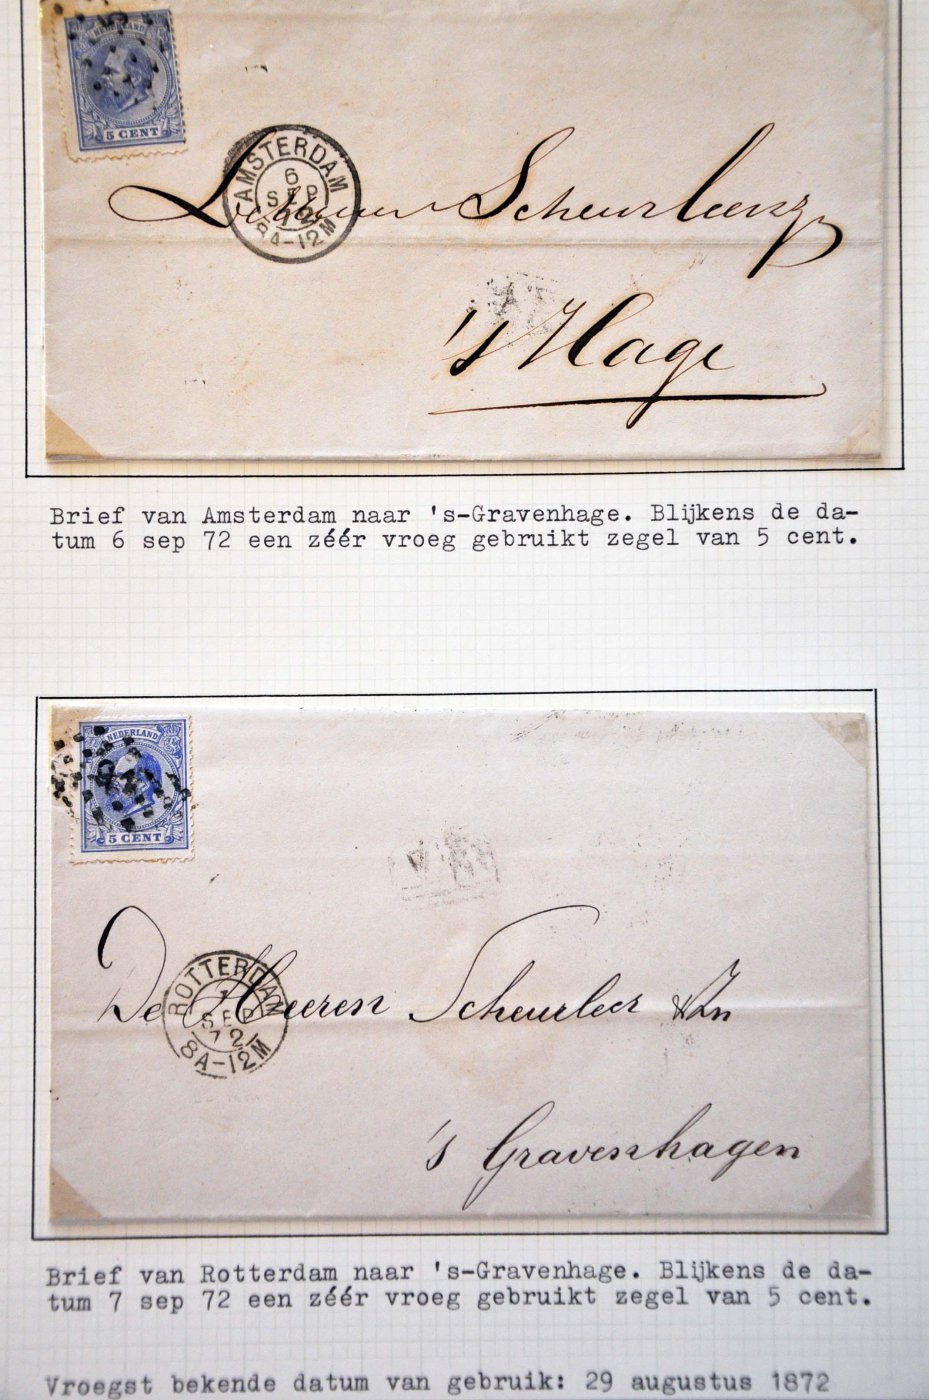 NEDERLAND
5 CENT
AMSTERDAM
6
SEP
72
8A-12M
De Heeren Scheurleer &Zn
's Hage
Brief van Amsterdam naar 's-Gravenhage. Blijkens de da-
tum 6 sep 72 een zéér vroeg gebruikt zegel van 5 cent.
NEDERLAND
5 CENT
ROTTERDAM
7
SEP
72
8A-12M
De Heeren Scheurleer & Zn
's Gravenhagen
Brief van Rotterdam naar 's-Gravenhage. Blijkens de da-
tum 7 sep 72 een zéér vroeg gebruikt zegel van 5 cent.
Vroegst bekende datum van gebruik: 29 augustus 1872